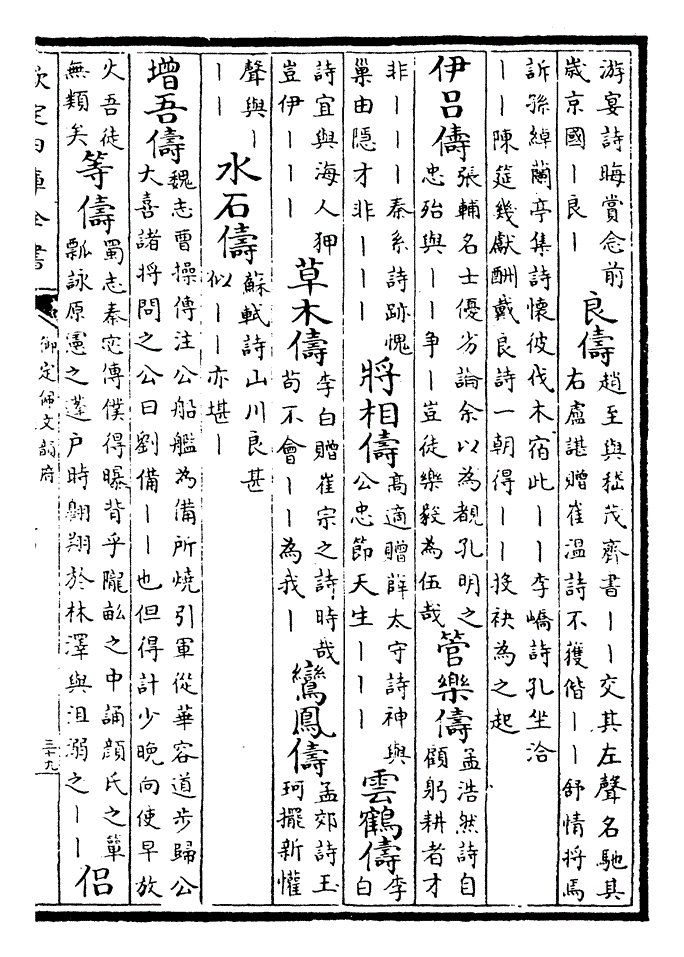 游宴詩晦賞念前
歲京國｜良｜
良儔
趙至與嵇茂齊書｜｜交其左聲名馳其
右盧諶贈崔溫詩不獲偕｜｜舒情將焉
訴孫綽蘭亭集詩懷彼伐木宿此｜｜李嶠詩孔坐洽
｜｜陳筵幾獻酬戴良詩一朝得｜｜投袂為之起
伊呂儔
張輔名士優劣論余以為覩孔明之
忠殆與｜｜爭｜豈徒樂毅為伍哉
管樂儔
孟浩然詩自
顧躬耕者才
非｜｜｜秦系詩跡愧
巢由隱才非｜｜｜
將相儔
高適贈薛太守詩神與
公忠節天生｜｜｜
雲鶴儔
李
白
詩宜與海人狎
豈伊｜｜｜
草木儔
李白贈崔宗之詩時哉
苟不會｜｜為我｜
鸞鳳儔
孟郊詩玉
珂擺新懽
聲與｜
｜｜
水石儔
蘇軾詩山川良甚
似｜｜亦堪｜
增吾儔
魏志曹操傳注公船艦為備所燒引軍從華容道步歸公
大喜諸將問之公曰劉備｜｜也但得計少晚向使早放
火吾徒
無類矣
等儔
蜀志秦宓傳僕得曝背乎隴畝之中誦顏氏之簞
瓢詠原憲之蓬戶時翱翔於林澤與沮溺之｜｜
侶
欽定四庫全書
御定佩文韻府
三十九